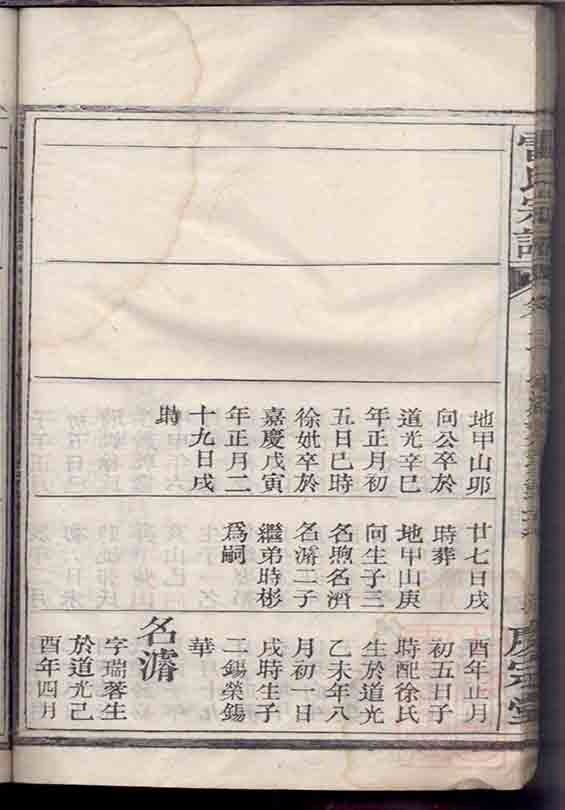 雷氏宗譜
慶宗堂
地甲山卯
向公卒於
道光辛巳
年正月初
五日巳時
徐妣卒於
嘉慶戊寅
年正月二
十九日戌
時
廿七日戌
時葬
地甲山庚
向生子三
名煦名濟
名濬二子
繼弟時彬
爲嗣
酉年正月
初五日子
時配徐氏
生於道光
乙未年八
月初一日
戌時生子
二錫榮錫
華
名濬
字瑞蓉生
於道光己
酉年四月